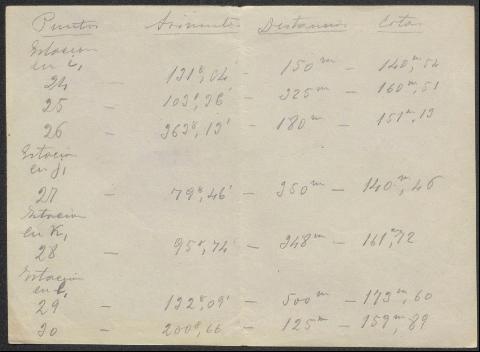 Puntos Azimutes Distancias Cotas
Estacion
en i,
24 — 131g,04' — 150m — 140m,54
25 — 103g,36' — 325m — 160m,51
26 — 363g,13' — 180m — 151m,13
Estacion
en j,
27 — 79g,46' — 350m — 140m,46
Estacion
en K,
28 — 95g,74' — 348m — 161m,72
Estacion
en l,
29 — 132g,09' — 500m — 173m,60
30 — 200g,66 — 125m — 159m,89